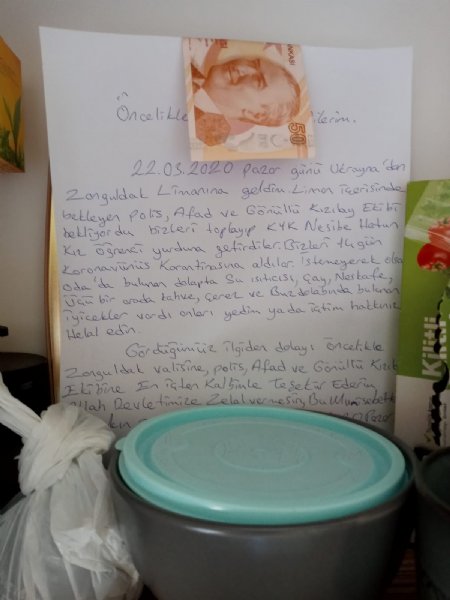 Öncelikle
22.03.2020 Pazar günü Ukrayna'dan
Zonguldak Limanına geldim. Liman içerisinde
bekleyen polis, Afad ve Gönüllü Kızılay Ekibi
bekliyordu bizleri toplayıp KYK Nesibe Hatun
Kız öğrenci yurduna getirdiler. Bizleri 14 gün
koronavürüs Karantinasına aldılar. istemeyerek olsa
oda'da bulunan dolapta su ısıtıcısı, çay, Neskafe,
üçü bir arada kahve, çerez ve Buzdolabında bulunan
iyicekler vardı onları yedim yada içtim hakkınızı
Helal edin.
Gördüğümüz ilgiden dolayı öncelikle
Zonguldak valisine, polis, Afad ve Gönüllü Kızıl
Ekibine En içten Kalbimle Teşekür Ederim
Allah Devletimize Zelal vermesin, Bu
Pazar
50
Kilitli